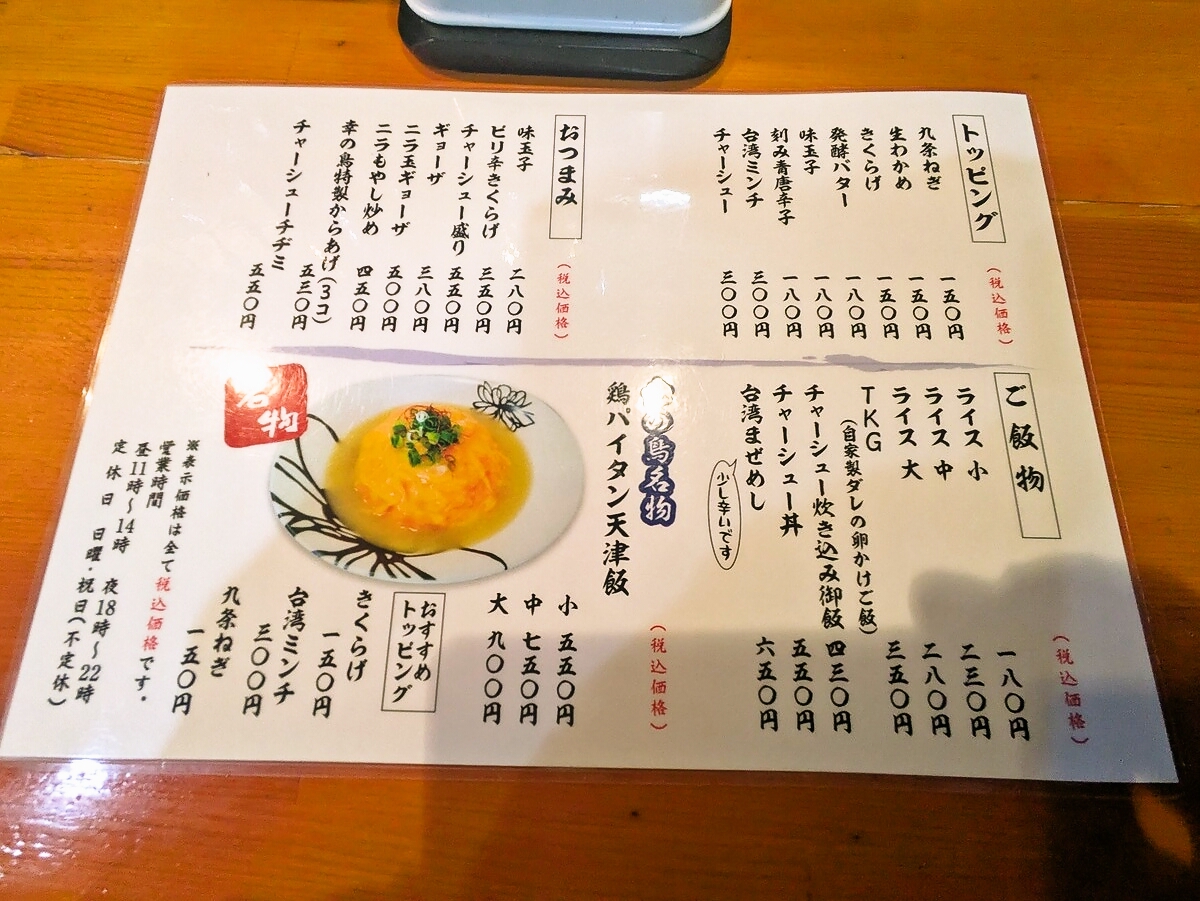 トッピング
(税込価格)
九条ねぎ 一五〇円
生わかめ 一五〇円
きくらげ 一五〇円
発酵バター 一八〇円
味玉子 一八〇円
刻み青唐辛子 一八〇円
台湾ミンチ 三〇〇円
チャーシュー 三〇〇円
おつまみ
(税込価格)
味玉子 二八〇円
ピリ辛きくらげ 三五〇円
チャーシュー盛り 五五〇円
ギョーザ 三八〇円
ニラ玉ギョーザ 五〇〇円
ニラもやし炒め 四五〇円
幸の鳥特製からあげ(3コ) 五三〇円
チャーシューチヂミ 五五〇円
ご飯物
(税込価格)
ライス 小 一八〇円
ライス 中 二三〇円
ライス 大 二八〇円
TKG 三五〇円
(自家製ダレの卵かけご飯)
チャーシュー炊き込み御飯 四三〇円
チャーシュー丼 五五〇円
台湾まぜめし 六五〇円
少し辛いです
の鳥名物
(税込価格)
鶏パイタン天津飯
小 五五〇円
中 七五〇円
大 九〇〇円
名物
おすすめ
トッピング
きくらげ
一五〇円
台湾ミンチ
三〇〇円
九条ねぎ
一五〇円
※表示価格は全て税込価格です。
営業時間
昼11時〜14時 夜18時〜22時
定休日 日曜・祝日(不定休)